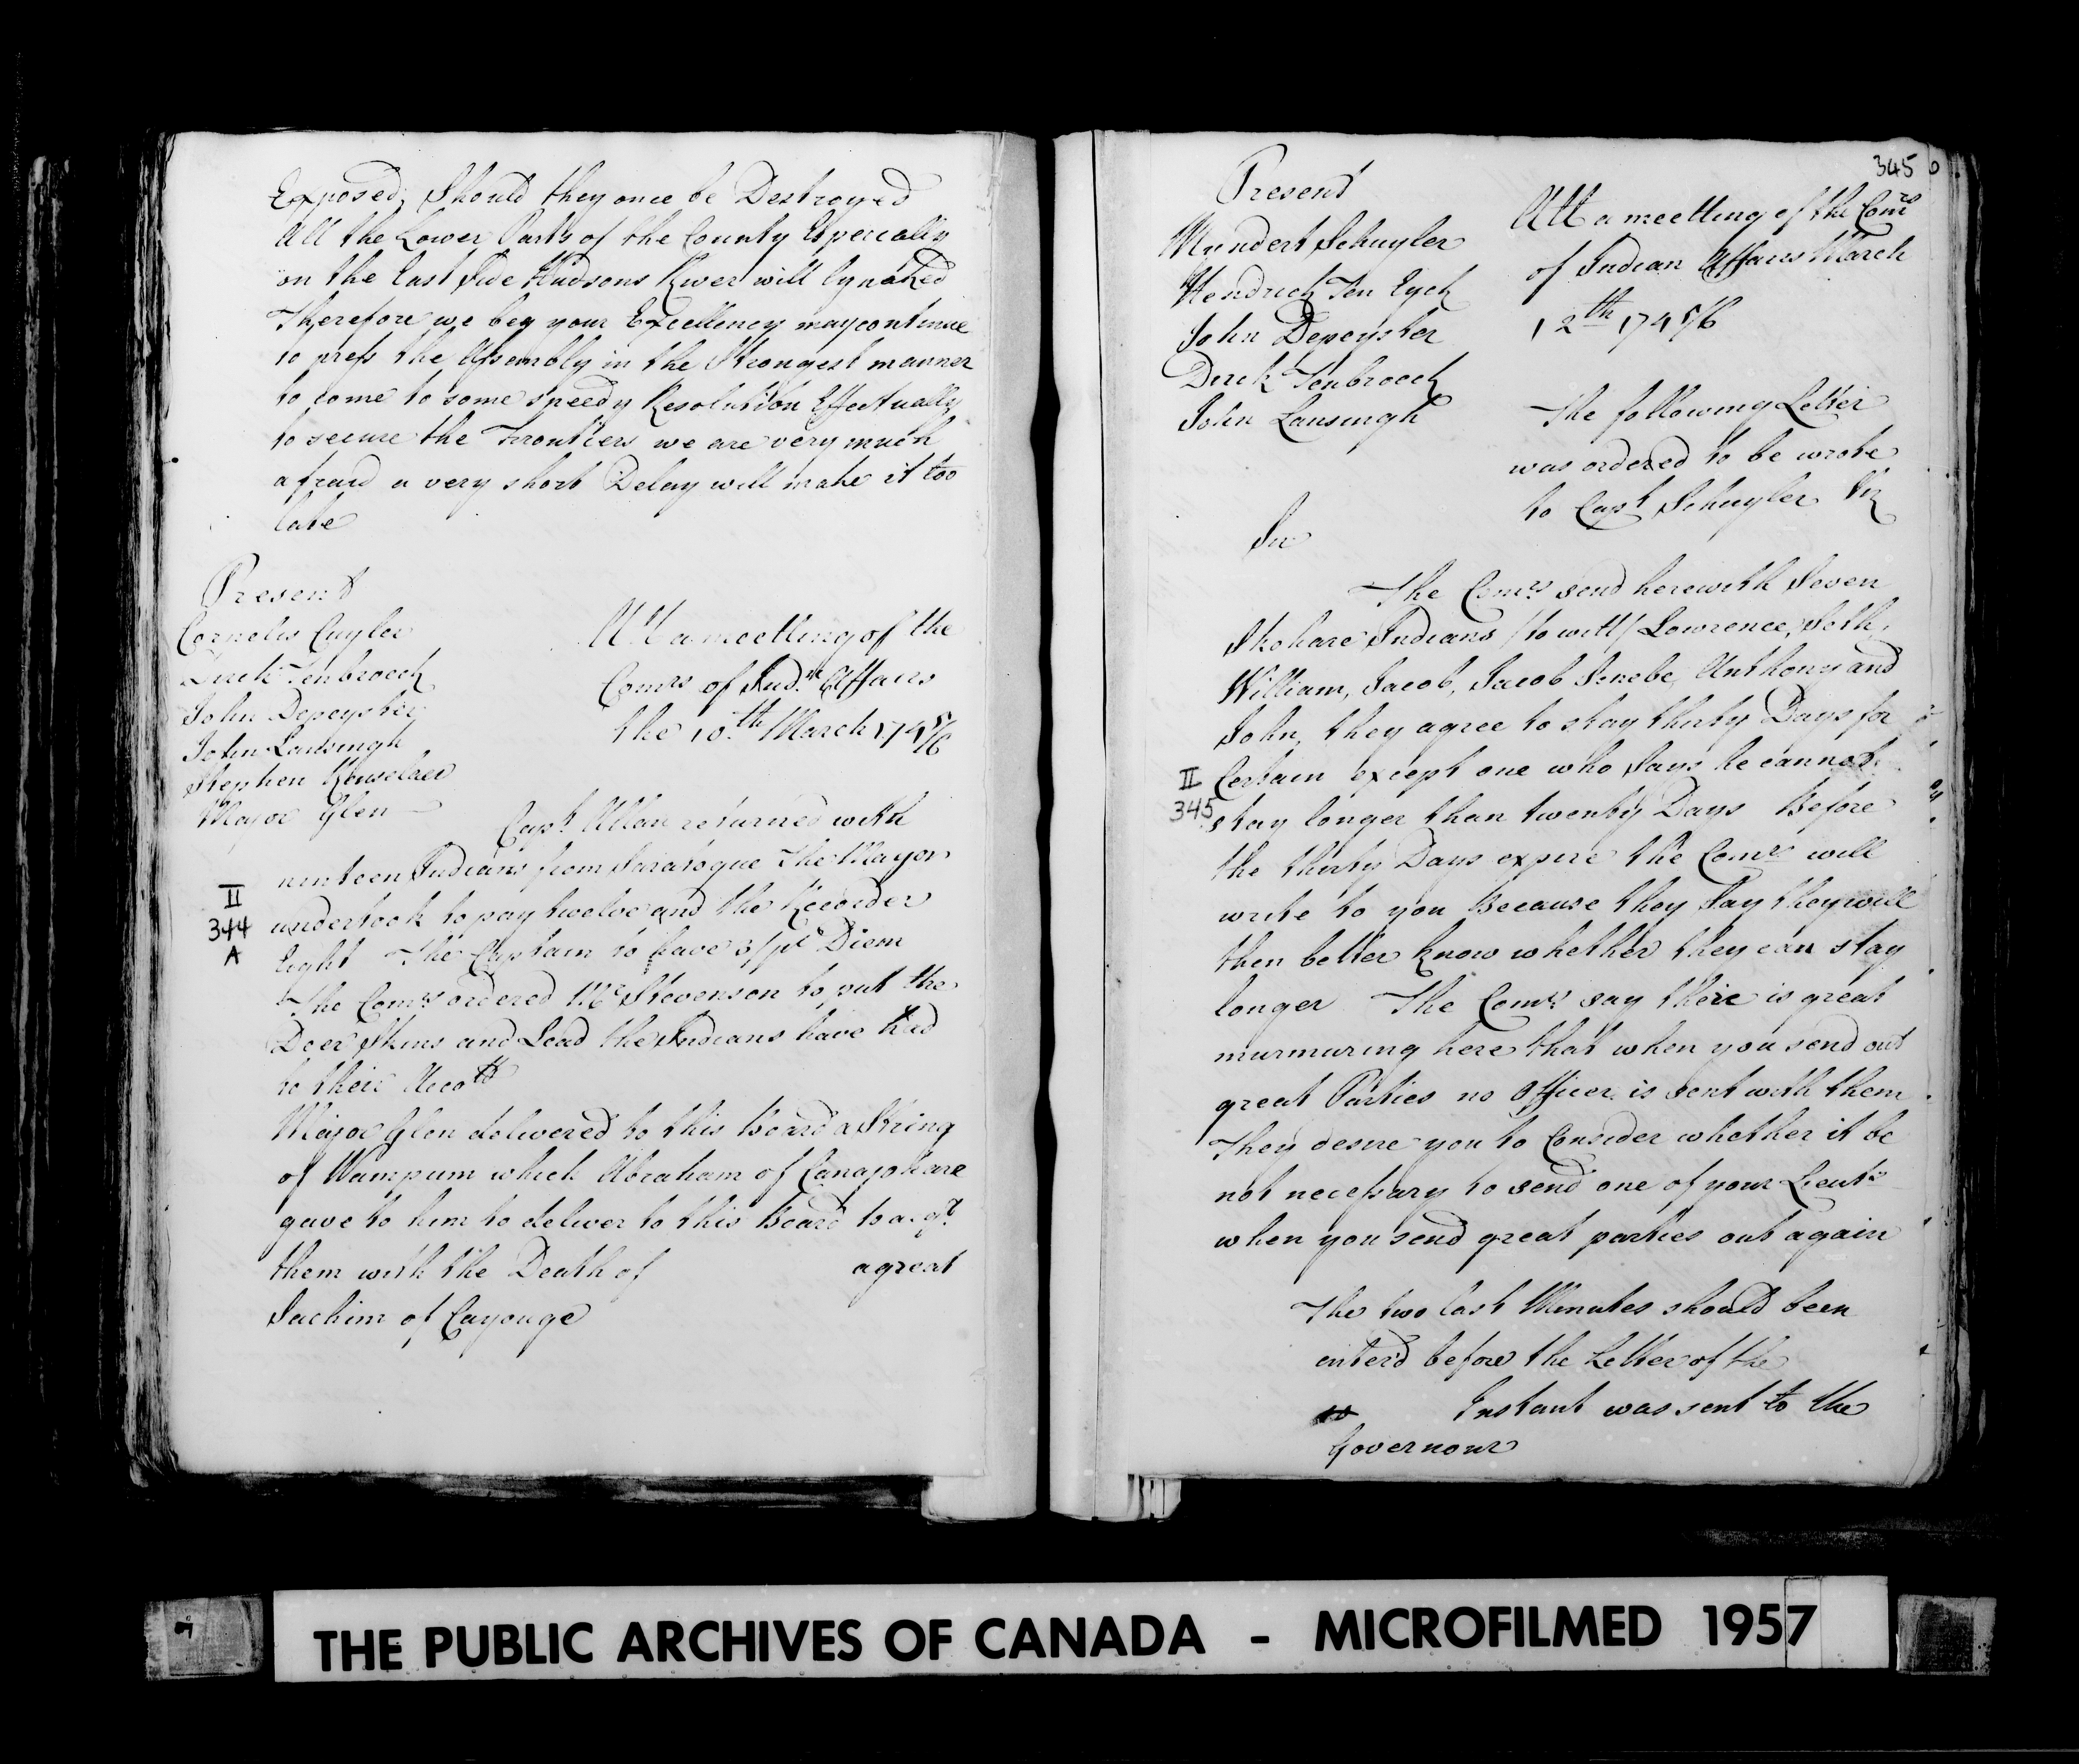 Exposed, Should they once be Destroyed
All the Lower Parts of the County Especially
on the East Side Hudsons River will ly naked
Therefore we beg your Excellency may continue
to press the Assembly in the Strongest manner
to come to some speedy Resolution Effectually
to secure the Frontiers we are very much
afraid a very short Delay will make it too
late
Present
Cornelis Cuyler
Dirck Tenbroeck
John Depeyster
John Lansingh
Stephen Renselaer
Major Glen
Att a meetting of the
Comrs of Indn Affairs
the 10th March 1745/6
Capt Allan returned with
ninteen Indians from Saratogue The Mayor
undertook to pay twelve and the Recorder
Eight The Captain to have 3/ pr Diem
The Comrs ordered Mr Stevenson to put the
Deer Skins and Lead the Indians have had
to their Accott
Major Glen delivered to this Board a String
of Wampum which Abraham of Canajohare
gave to him to deliver to this Board to acqt
them with the Death of a great
Sachim of Cayouge
II
344
A
345
Present
Myndert Schuyler
Hendrick Ten Eyck
John Depeyster
Dirck Tenbroeck
John Lansingh
Att a meetting of the Comrs
of Indian Affairs March
12th 1745/6
The following Letter
was ordered to be wrote
to Capt Schuyler Viz
Sir
The Comrs send herewith Seven
Skohare Indians /to witt/ Lawrence, Seth,
William, Jacob, Jacob Anthony and
John, they agree to stay thirty Days for
Certain except one who Says he cannot
stay longer than twenty Days Before
the thirty Days expire the Comrs will
write to you Because they Say they will
then better know whether they can stay
longer The Comrs say there is great
murmuring here that when you send out
great Parties no Officer is sent with them
They desire you to Consider whether it be
not necessary to send one of your Lieuts
when you send great parties out again
II
345
The two last Minutes should been
enterd before the Letter of the
Instant was sent to the
Governour
THE PUBLIC ARCHIVES OF CANADA - MICROFILMED 1957